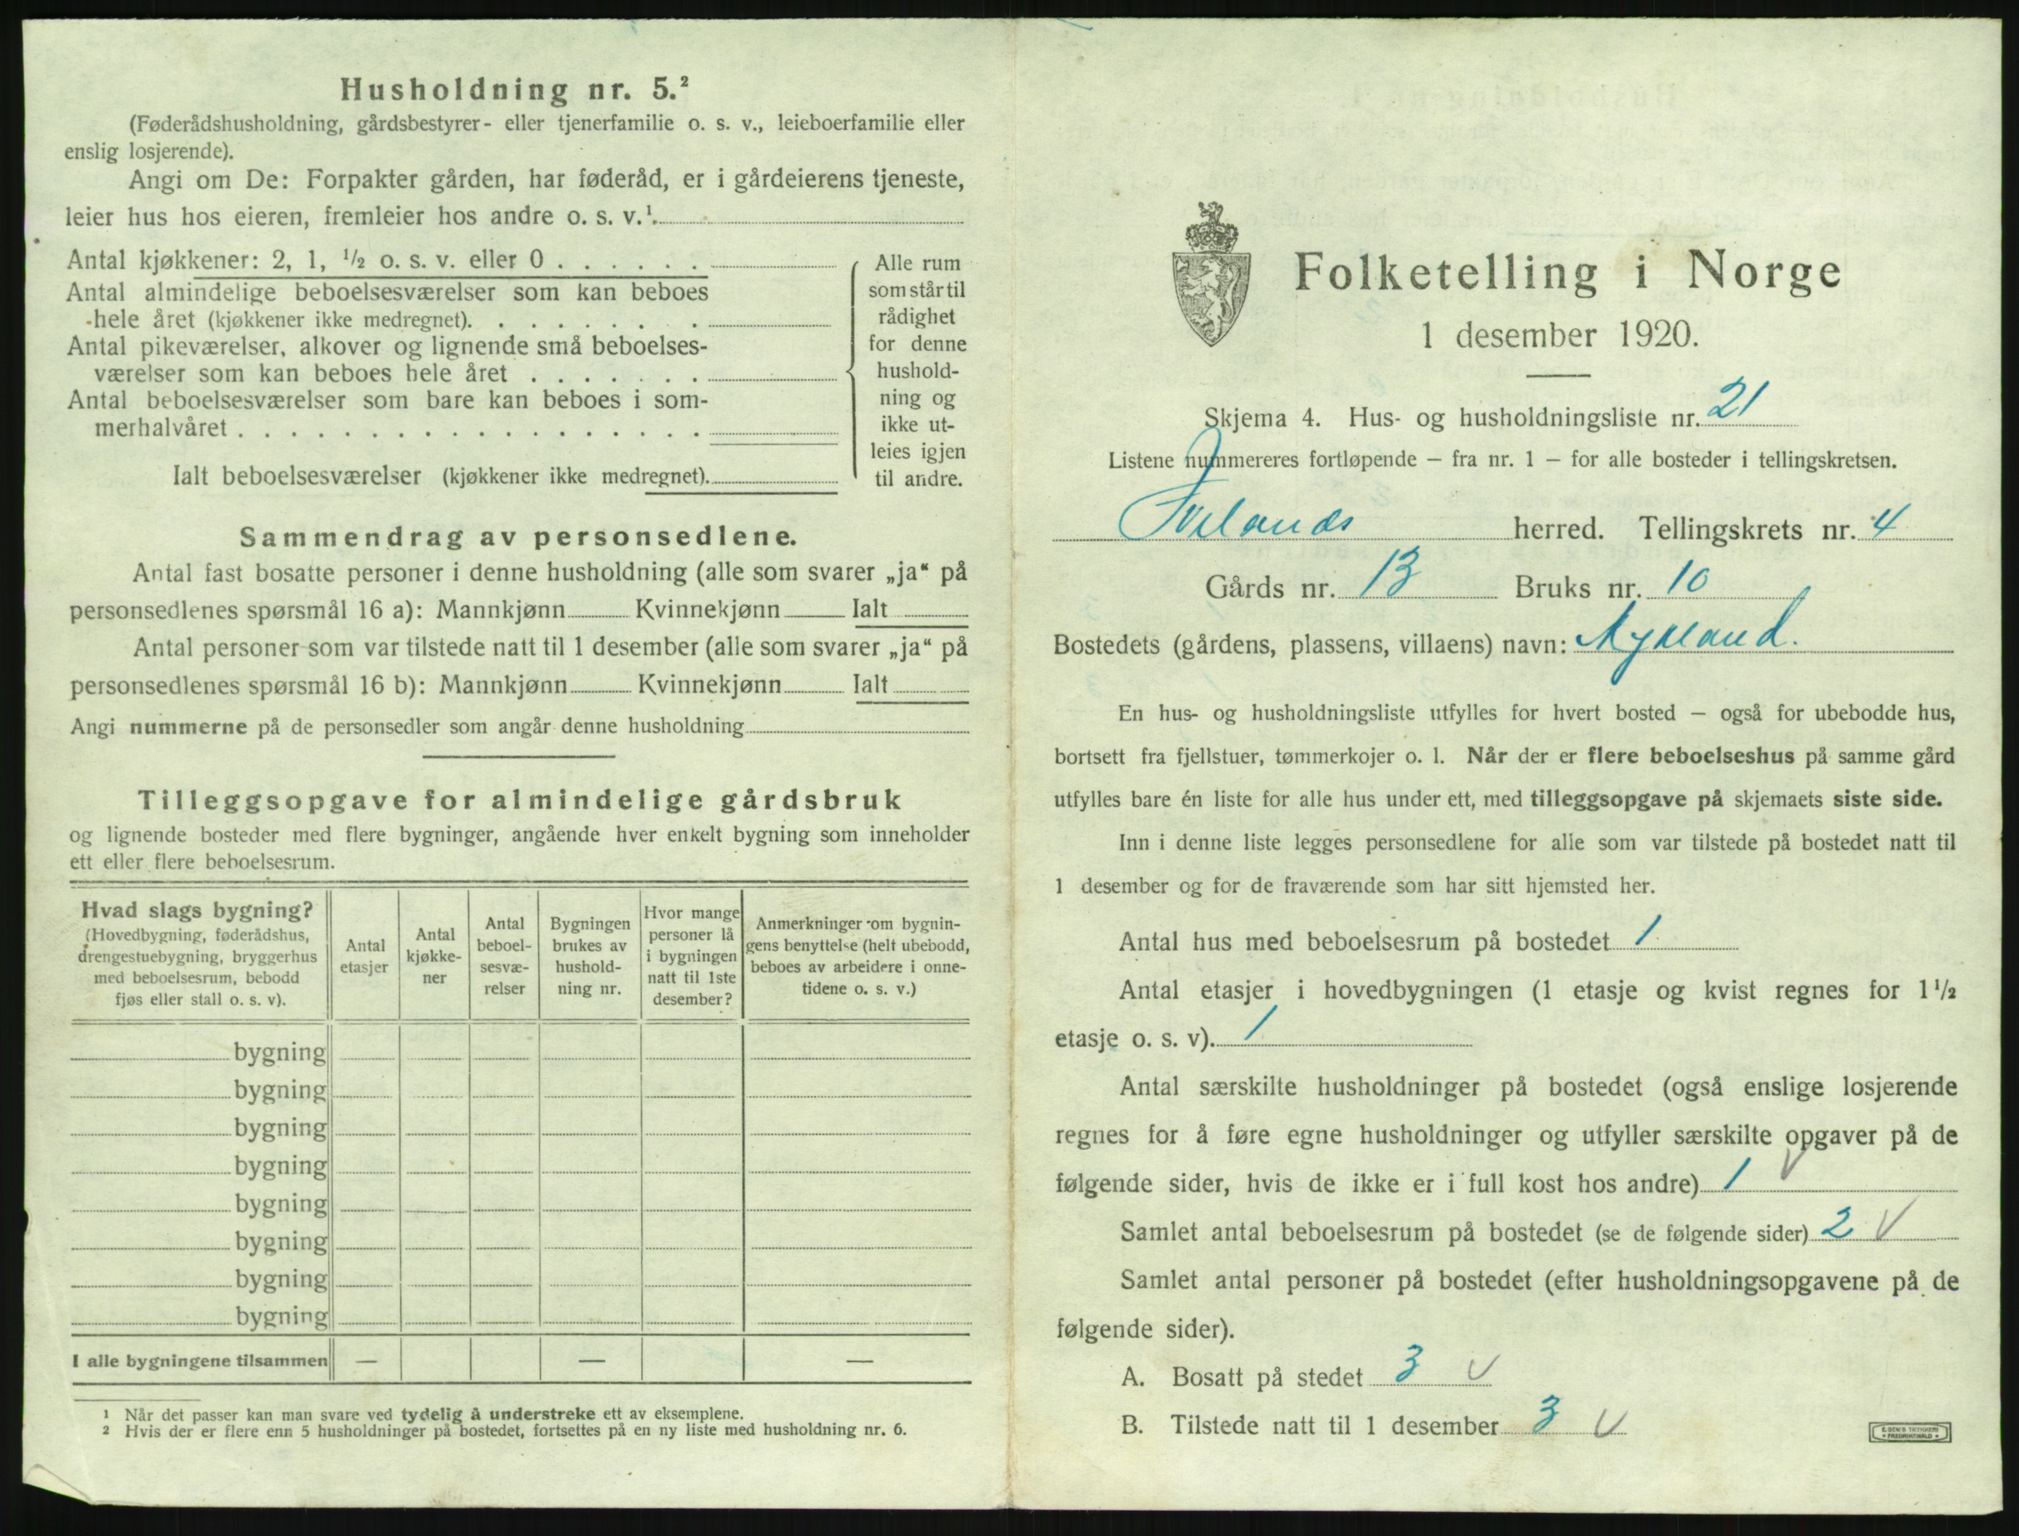 Husholdning nr. 5.²
(Føderådshusholdning, gårdsbestyrer- eller tjenerfamilie o. s. v., leieboerfamilie eller
enslig losjerende).
Angi om De: Forpakter gården, har føderåd, er i gårdeierens tjeneste,
leier hus hos eieren, fremleier hos andre o. s. v.¹
Antal kjøkkener: 2, 1, ½ o. s. v. eller 0 . . . . . .
Antal almindelige beboelsesværelser som kan beboes
hele året (kjøkkener ikke medregnet). . . . . . . .
Antal pikeværelser, alkover og lignende små beboelses-
værelser som kan beboes hele året . . . . . . .
Antal beboelsesværelser som bare kan beboes i som-
merhalvåret . . . . . . . . . . . . . . . . . .
Ialt beboelsesværelser (kjøkkener ikke medregnet).
Alle rum
som står til
rådighet
for denne
hushold-
ning og
ikke ut-
leies igjen
til andre.
Sammendrag av personsedlene.
Antal fast bosatte personer i denne husholdning (alle som svarer „ja“ på
personsedlenes spørsmål 16 a): Mannkjønn Kvinnekjønn Ialt
Antal personer som var tilstede natt til 1 desember (alle som svarer „ja“ på
personsedlenes spørsmål 16 b): Mannkjønn Kvinnekjønn Ialt
Angi nummerne på de personsedler som angår denne husholdning
Tilleggsopgave for almindelige gårdsbruk
og lignende bosteder med flere bygninger, angående hver enkelt bygning som inneholder
ett eller flere beboelsesrum.
Hvad slags bygning?
(Hovedbygning, føderådshus,
drengestuebygning, bryggerhus
med beboelsesrum, bebodd
fjøs eller stall o. s. v).
Antal
etasjer
Antal
kjøkke-
ner
Antal
beboel-
sesvæ-
relser
Bygningen
brukes av
hushold-
ning nr.
Hvor mange
personer lå
i bygningen
natt til 1ste
desember?
Anmerkninger om bygnin-
gens benyttelse (helt ubebodd,
beboes av arbeidere i onne-
tidene o. s. v.)
bygning
bygning
bygning
bygning
bygning
bygning
bygning
bygning
I alle bygningene tilsammen — — —
¹ Når det passer kan man svare ved tydelig å understreke ett av eksemplene.
² Hvis der er flere enn 5 husholdninger på bostedet, fortsettes på en ny liste med husholdning nr. 6.
Folketelling i Norge
1 desember 1920.
Skjema 4. Hus- og husholdningsliste nr. 21
Listene nummereres fortløpende – fra nr. 1 – for alle bosteder i tellingskretsen.
herred. Tellingskrets nr. 4
Gårds nr. 13 Bruks nr. 10
Bostedets (gårdens, plassens, villaens) navn: Nyland.
En hus- og husholdningsliste utfylles for hvert bosted – også for ubebodde hus,
bortsett fra fjellstuer, tømmerkojer o. l. Når der er flere beboelseshus på samme gård
utfylles bare én liste for alle hus under ett, med tilleggsopgave på skjemaets siste side.
Inn i denne liste legges personsedlene for alle som var tilstede på bostedet natt til
1 desember og for de fraværende som har sitt hjemsted her.
Antal hus med beboelsesrum på bostedet 1
Antal etasjer i hovedbygningen (1 etasje og kvist regnes for 1½
etasje o. s. v). 1
Antal særskilte husholdninger på bostedet (også enslige losjerende
regnes for å føre egne husholdninger og utfyller særskilte opgaver på de
følgende sider, hvis de ikke er i full kost hos andre) 1 V
Samlet antal beboelsesrum på bostedet (se de følgende sider) 2 V
Samlet antal personer på bostedet (efter husholdningsopgavene på de
følgende sider).
A. Bosatt på stedet 3 V
B. Tilstede natt til 1 desember 3 V